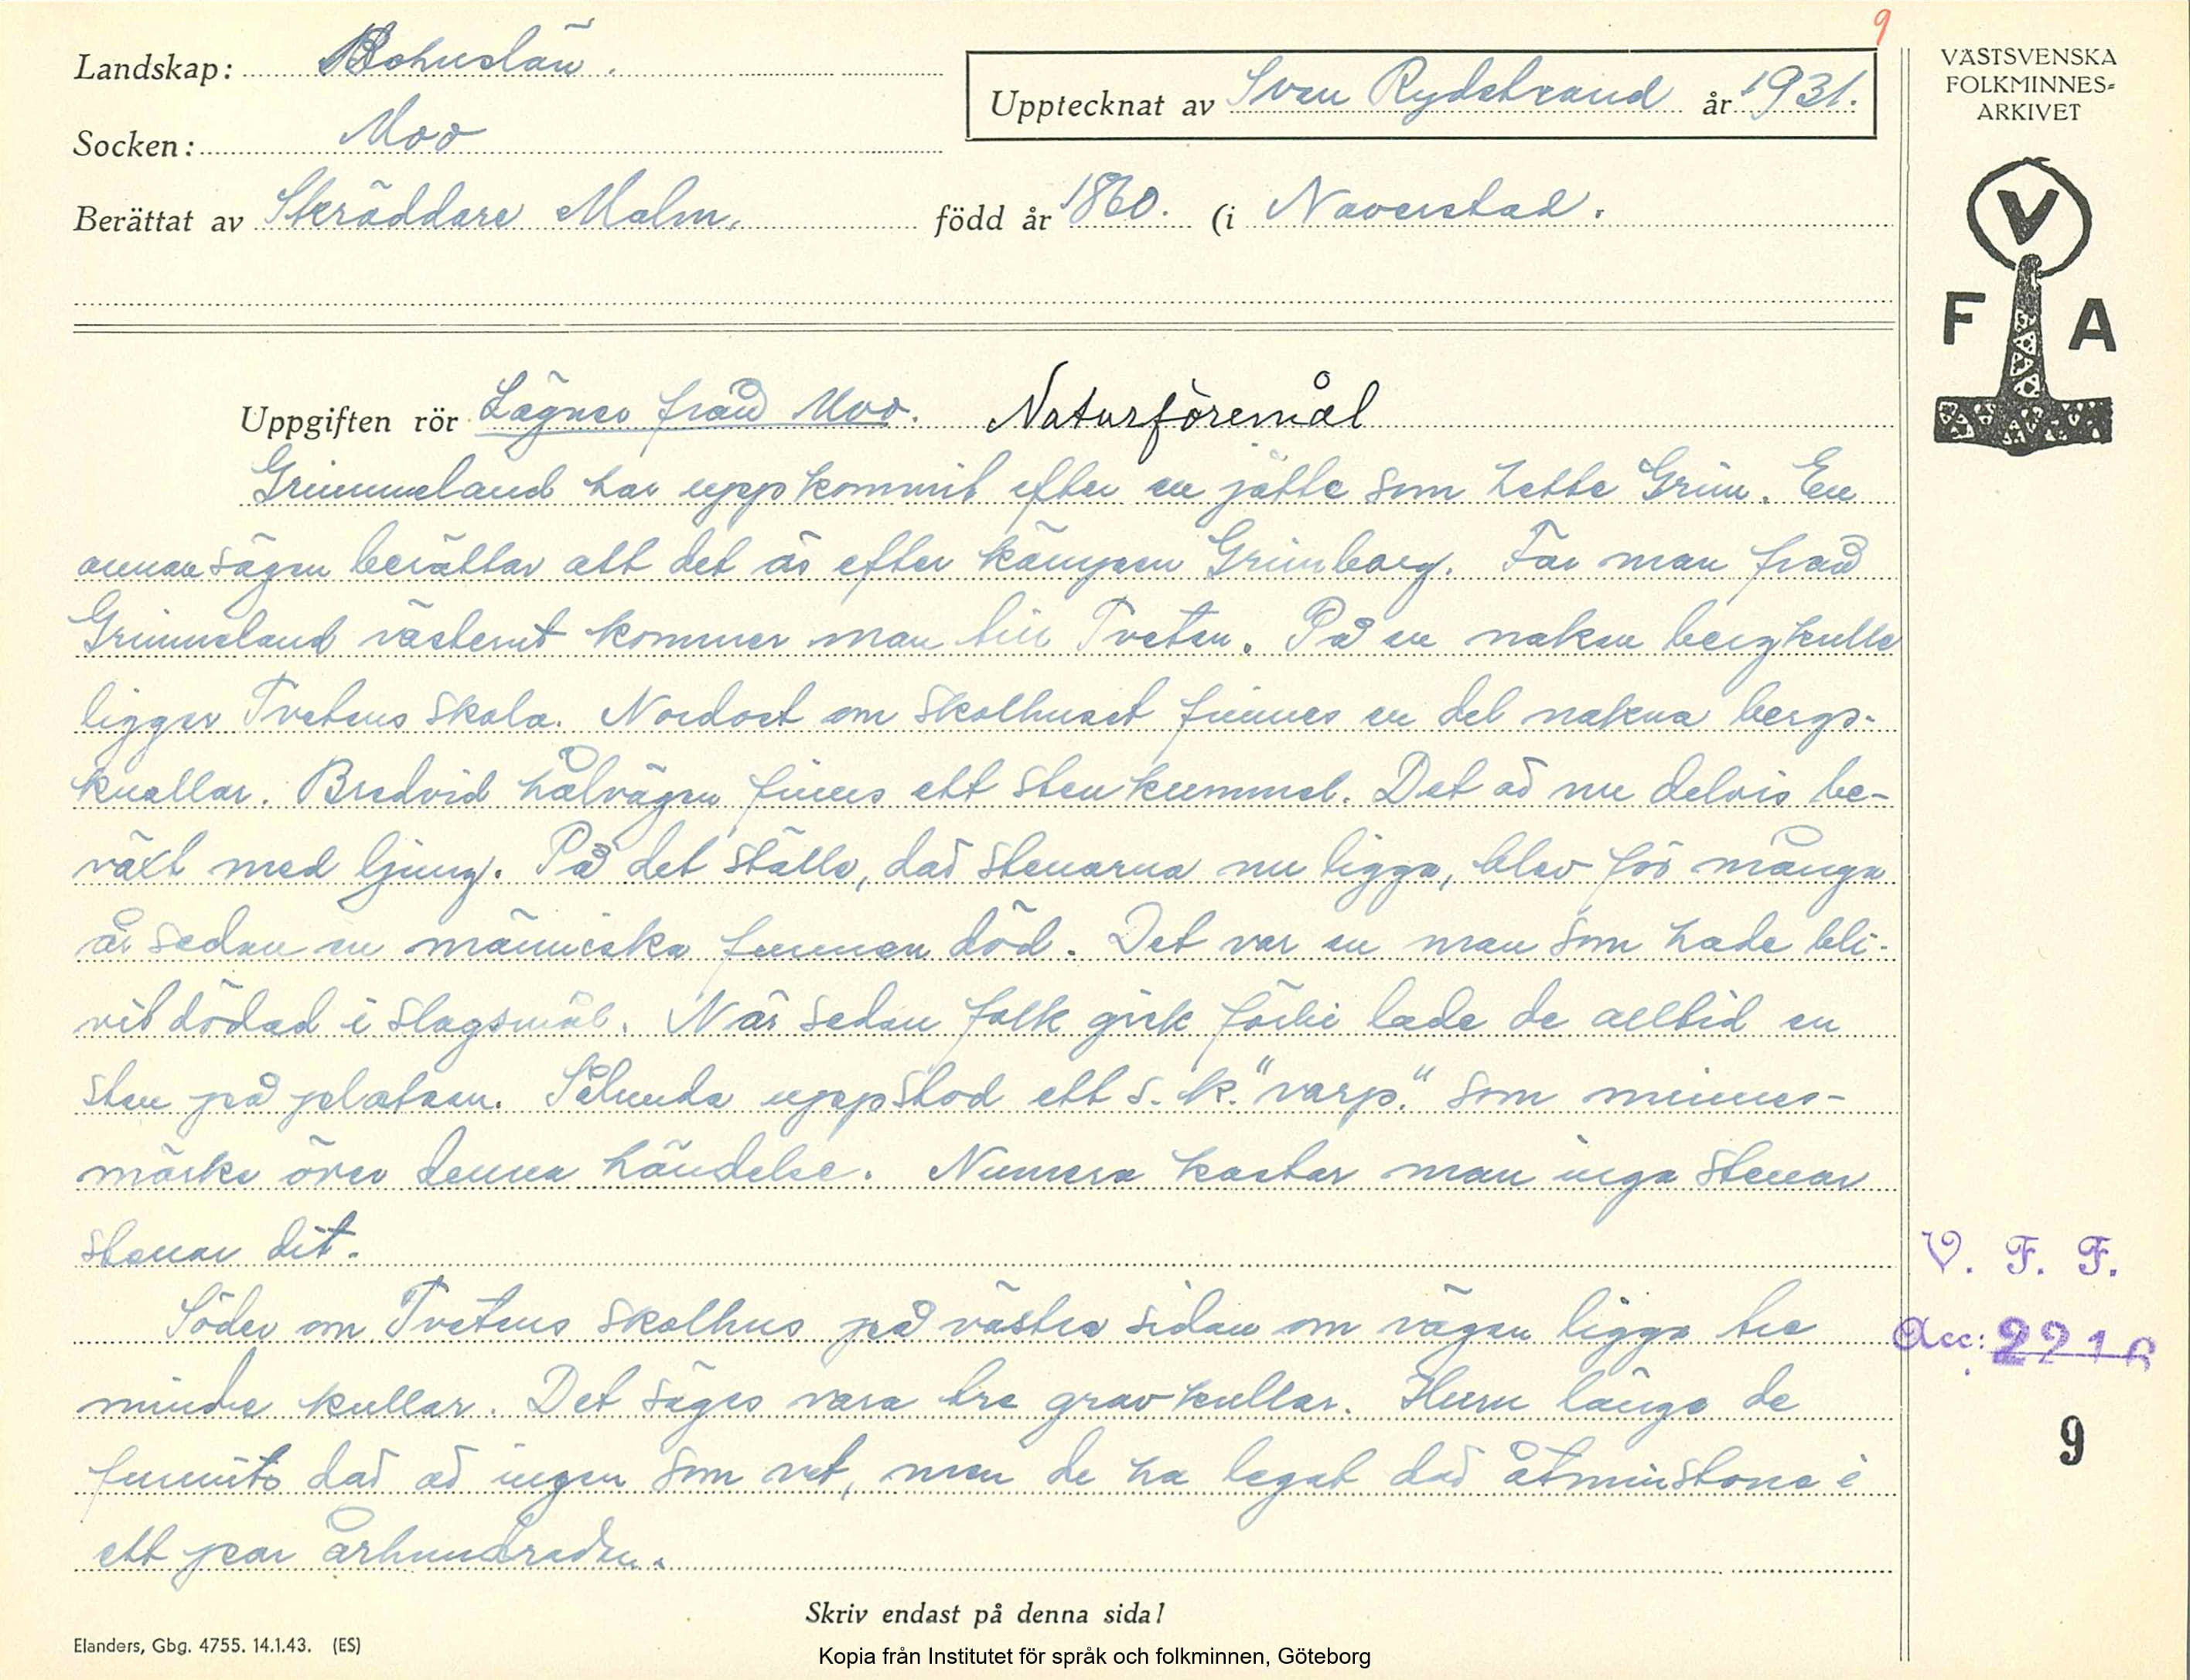 9
Landskap: Bohuslän.
Socken: Moo
Berättat av Skräddare Malm.
Upptecknat av Sven Rydstrand år 1931.
född år 1860. (i Naverstad.
VÄSTSVENSKA
FOLKMINNES=
ARKIVET
V
F A
Uppgiften rör Sägner från Moo. Naturföremål
Grimmeland har uppkommit efter en jätte som hette Grim. En
annan sägen berättar att det är efter kämpen Grimborg. Far man från
Grimmeland västerut kommer man till Tveten. På en naken bergkulle
ligger Tvetens skola. Nordost om skolhuset finnes en del nakna bergs-
knallar. Bredvid hålvägen finns ett stenkummel. Det är nu delvis be-
växt med ljung. På det ställe, där stenarna nu ligga, blev för många
år sedan en människa funnen död. Det var en man som hade bli-
vit dödad i slagsmål. När sedan folk gick förbi lade de alltid en
sten på platsen. Sålunda uppstod ett s.k. "varp." som minnes-
märke över denna händelse. Numera kastar man inga stenar
stenar dit.
Söder om Tvetens skolhus på västra sidan om vägen ligga tre
mindre kullar. Det säges vara tre gravkullar. Huru länge de
funnits där är ingen som vet, men de ha legat där åtminstone i
ett par århundraden.
V. F. F.
Acc: 2216
9
Skriv endast på denna sida!
Elanders, Gbg. 4755. 14.1.43. (ES)
Kopia från Institutet för språk och folkminnen, Göteborg